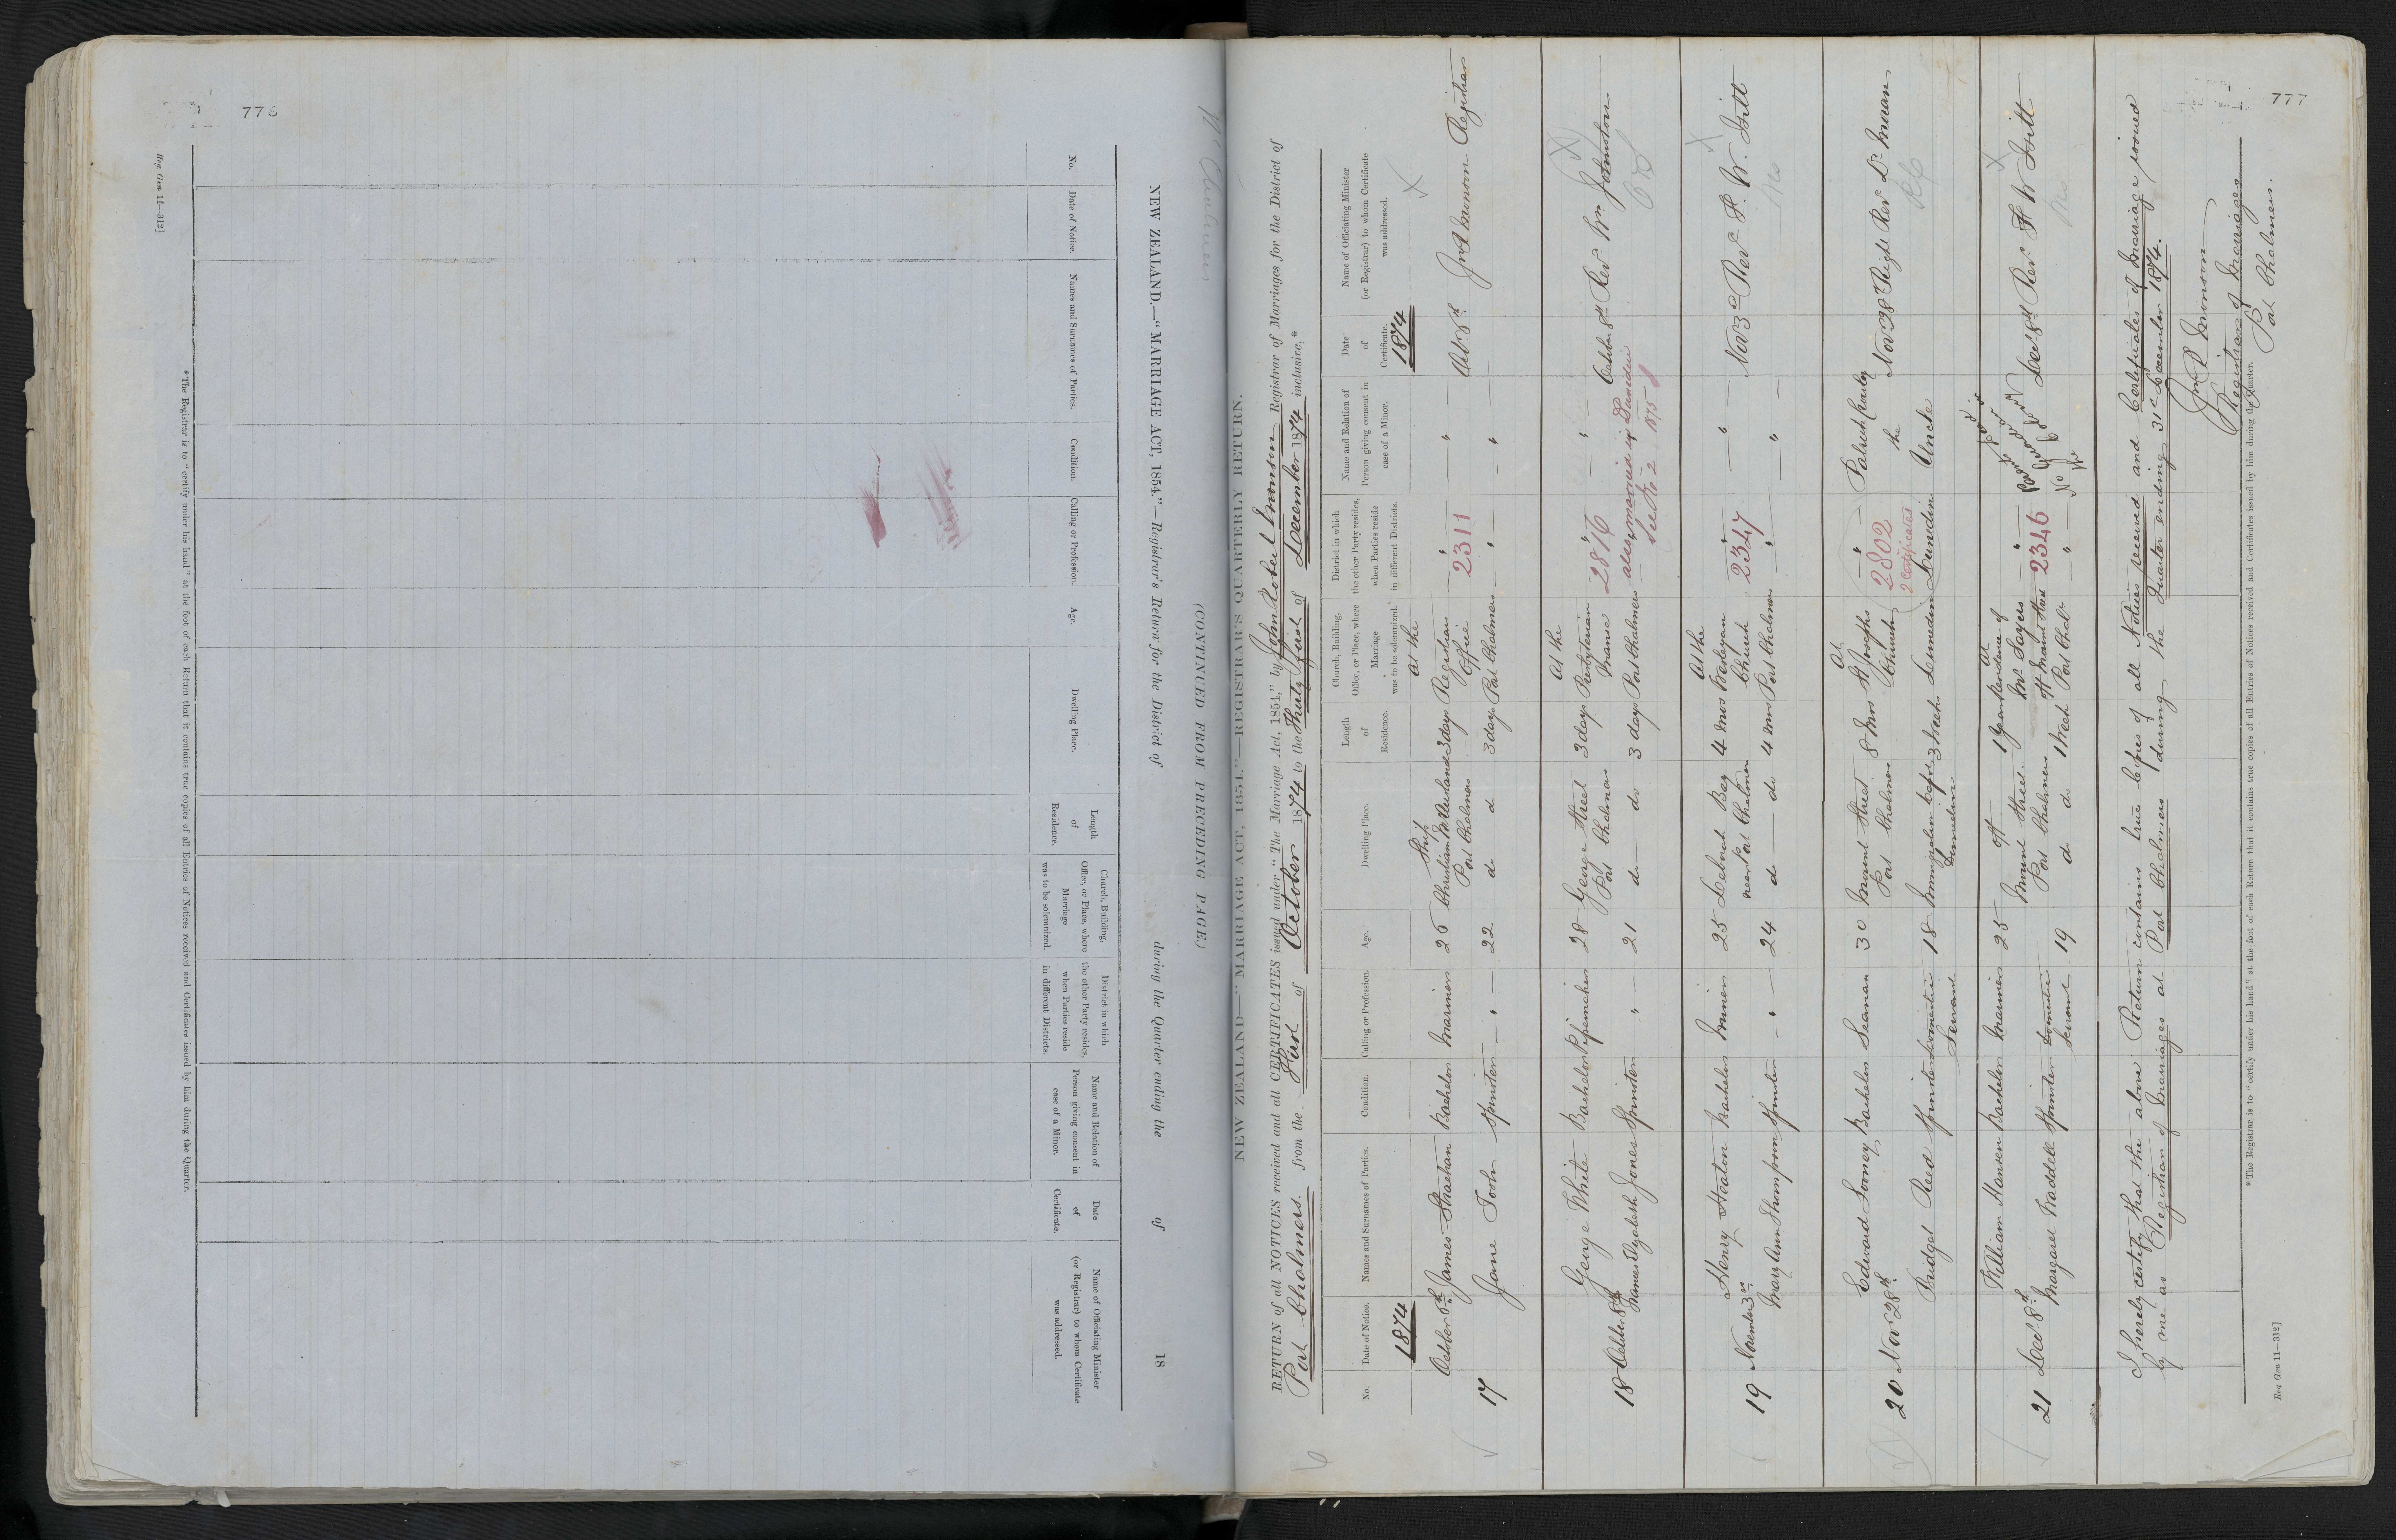 776
Reg Gen 11—312]
NEW ZEALAND.—"MARRIAGE ACT, 1854."—Registrar's Return for the District of during the Quarter ending the of 18
(CONTINUED FROM PRECEDING PAGE.)
No.
Date of Notice.
Names and Surnames of Parties.
Condition.
Calling or Profession.
Age.
Dwelling Place.
Length of Residence.
Church, Building, Office, or Place, where Marriage was to be solemnized.
District in which the other Party resides, when Parties reside in different Districts.
Name and Relation of Person giving consent in case of a Minor.
Date of Certificate.
Name of Officiating Minister (or Registrar) to whom Certificate was addressed.
*The Registrar is to "certify under his hand" at the foot of each Return that it contains true copies of all Entries of Notices received and Certificates issued by him during the Quarter.
777
6
NEW ZEALAND—"MARRIAGE ACT, 1854."—REGISTRAR'S QUARTERLY RETURN.
RETURN of all NOTICES received and all CERTIFICATES issued under "The Marriage Act, 1854," by John Robert Monson Registrar of Marriages for the District of
Port Chalmers from the First of October 1874 to the Thirty first of December 1874 inclusive.*
No.
Date of Notice.
Names and Surnames of Parties.
Condition.
Calling or Profession.
Age.
Dwelling Place.
Length of Residence.
Church, Building, Office, or Place, where Marriage was to be solemnized.
District in which the other Party resides, when Parties reside in different Districts.
Name and Relation of Person giving consent in case of a Minor.
Date of Certificate.
Name of Officiating Minister (or Registrar) to whom Certificate was addressed.
1874 1874
17 October James Strachan Bachelor Mariner 25 Ship Christian McAusland Port Chalmers 3 days at the Registrar Office Port Chalmers 2311 Jno R Monson Registrar
Jane Tooh Spinster 22 do do 3 days
18 October 8th George White Bachelor 28 George Street Port Chalmers 3 days At the Presbyterian Manse Port Chalmers 2816 October 8th Revd Wm Johnston
Elizabeth Jones Spinster 21 do do 3 days
also married in Dunedin
see No 2 1875
19 November 3rd Henry Hoaton Bachelor Miner 25 Deborah Bay near to Port Chalmers 4 Mos At the Wesleyan Church Port Chalmers 2347 Nov 3rd Revd H. W. Britt
Mary Ann Thompson Spinster 24 do do 4 mos
20 Nov 28th Edward Bachelor Seaman 30 Mount Street Port Chalmers 8 Mos At St Josephs Church Dunedin 2802 Patrick the Uncle Nov 28th Right Revd Dr Moran
2 Certificates
Bridget Reed Spinster Domestic Servant 18 Immigration Dunedin 3 weeks Dunedin
21 Decr 8th William Hansen Bachelor Mariner 25 off Mount Street Port Chalmers 1 Year at residence of Mr Sayers off Mount Street Port Chal 2346 Decr 8th Revd H W Britt
Margaret Waddell Spinster Domestic Servant 19 do do 1 Week
I hereby certify that the above Return contains true Copies of all Notices received and Certificates of Marriage issued
by me as Registrar of Marriages at Port Chalmers during the Quarter ending 31st December 1874.
Jno R Monson
Registrar of Marriages
Port Chalmers.
*The Registrar is to "certify under his hand" at the foot of each Return that it contains true copies of all Entries of Notices received and Certificates issued by him during the Quarter.
Reg Gen 11—312]